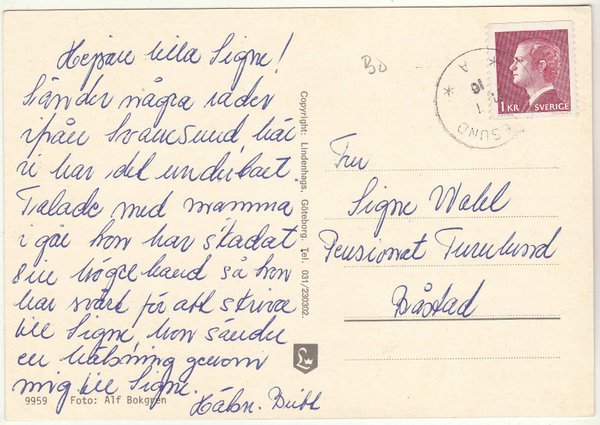 Hejsan lilla Signe!
Sänder några rader
ifrån Svanesund, här
vi har det underbart.
Talade med mamma
i går hon har skadat
sin högre hand så hon
har svårt för att skriva
till Signe, hon sänder
en hälsning genom
mig till Signe.
Hälsn. Britt
9959 Foto: Alf Bokgren
Copyright: Lindenhags, Göteborg Tel. 031/230302.
L
Bo
ESUND
16
A
1 KR SVERIGE
Fru
Signe Wahl
Pensionat Furulund
Båstad